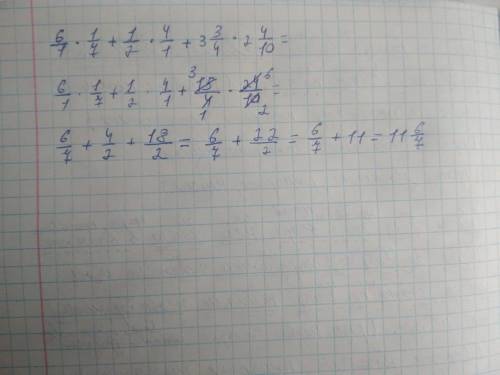 6/1 · 1/7 + 1/2 · 4/1 + 3 3/4 · 2 4/10 =
6/1 · 1/7 + 1/2 · 4/1 + 3 18/4 1 · 24 6/10 2 =
6/7 + 4/2 + 18/2 = 6/7 + 22/2 = 6/7 + 11 = 11 6/7